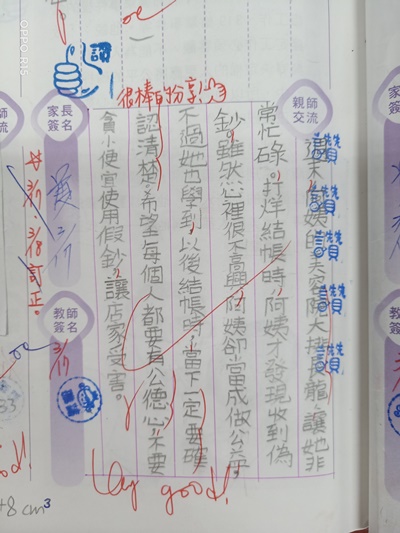 親師交流
週末阿姨的美容院大排長龍,讓她非
常忙碌。打烊結帳時,阿姨才發現收到偽
鈔。雖然心裡很不高興,阿姨卻當成做公益。
不過她也學到,以後結帳時,當下一定要確
認清楚。希望每個人都要有公德心,不要
貪小便宜使用假鈔,讓店家受害。
讚
讚
讚
讚
讚
很棒的分享
讚
good!
家長簽名
3/17
教師簽名
3/17
3/18 訂正。
8 cm³
OPPO R15